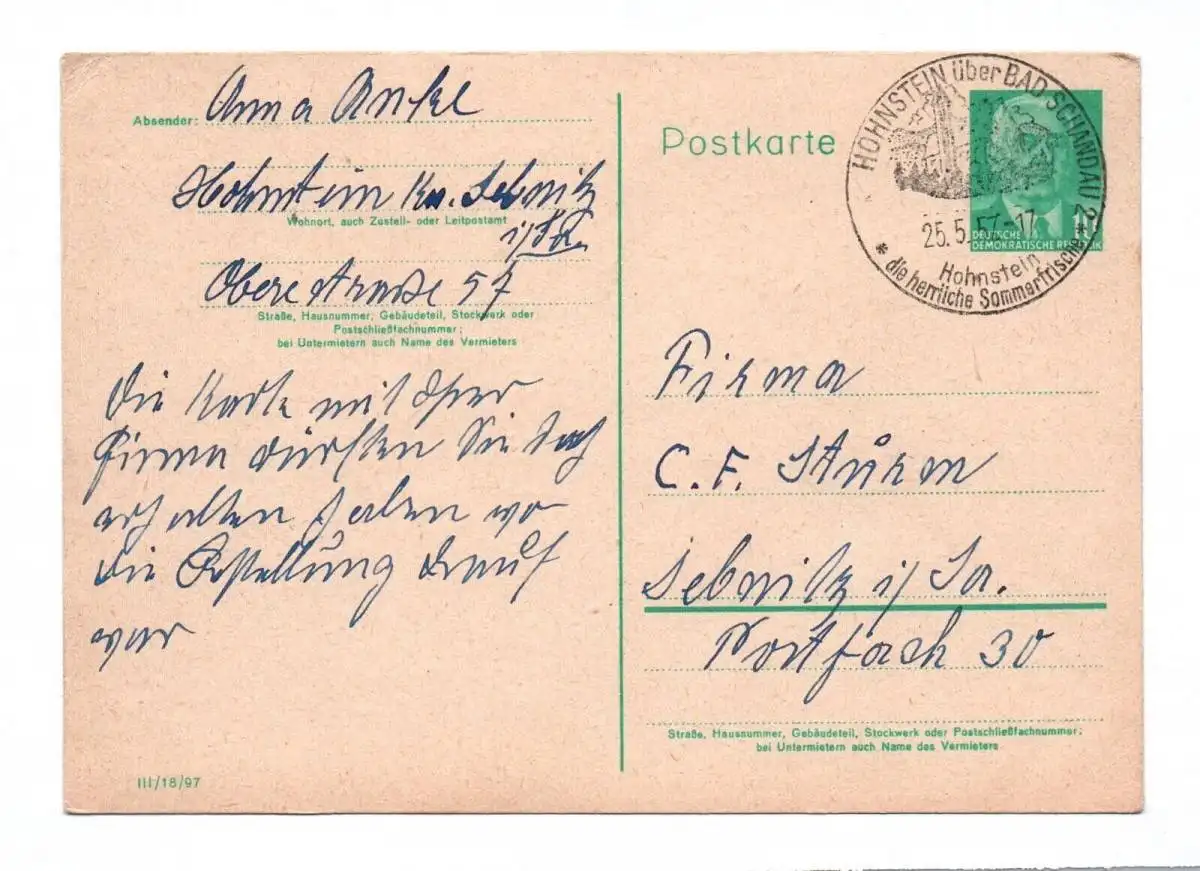 Absender: Anna Anke
Hohnstein Kr. Sebnitz
Wohnort, auch Zustell- oder Leitpostamt
i/Sa.
Oberestraße 57
Straße, Hausnummer, Gebäudeteil, Stockwerk oder
Postschließfachnummer;
bei Untermietern auch Name des Vermieters
Die Karte mit Ihrer
Firma dürften Sie doch
erhalten haben wo
die Bestellung drauf
war
III/18/97
Postkarte
HOHNSTEIN über BAD SCHANDAU 2
25.5.57-17
Hohnstein
* die herrliche Sommerfrische *
DEUTSCHE
DEMOKRATISCHE REPUBLIK
10
Firma
C. F. Stůrm
Sebnitz i/Sa.
Postfach 30
Straße, Hausnummer, Gebäudeteil, Stockwerk oder Postschließfachnummer;
bei Untermietern auch Name des Vermieters